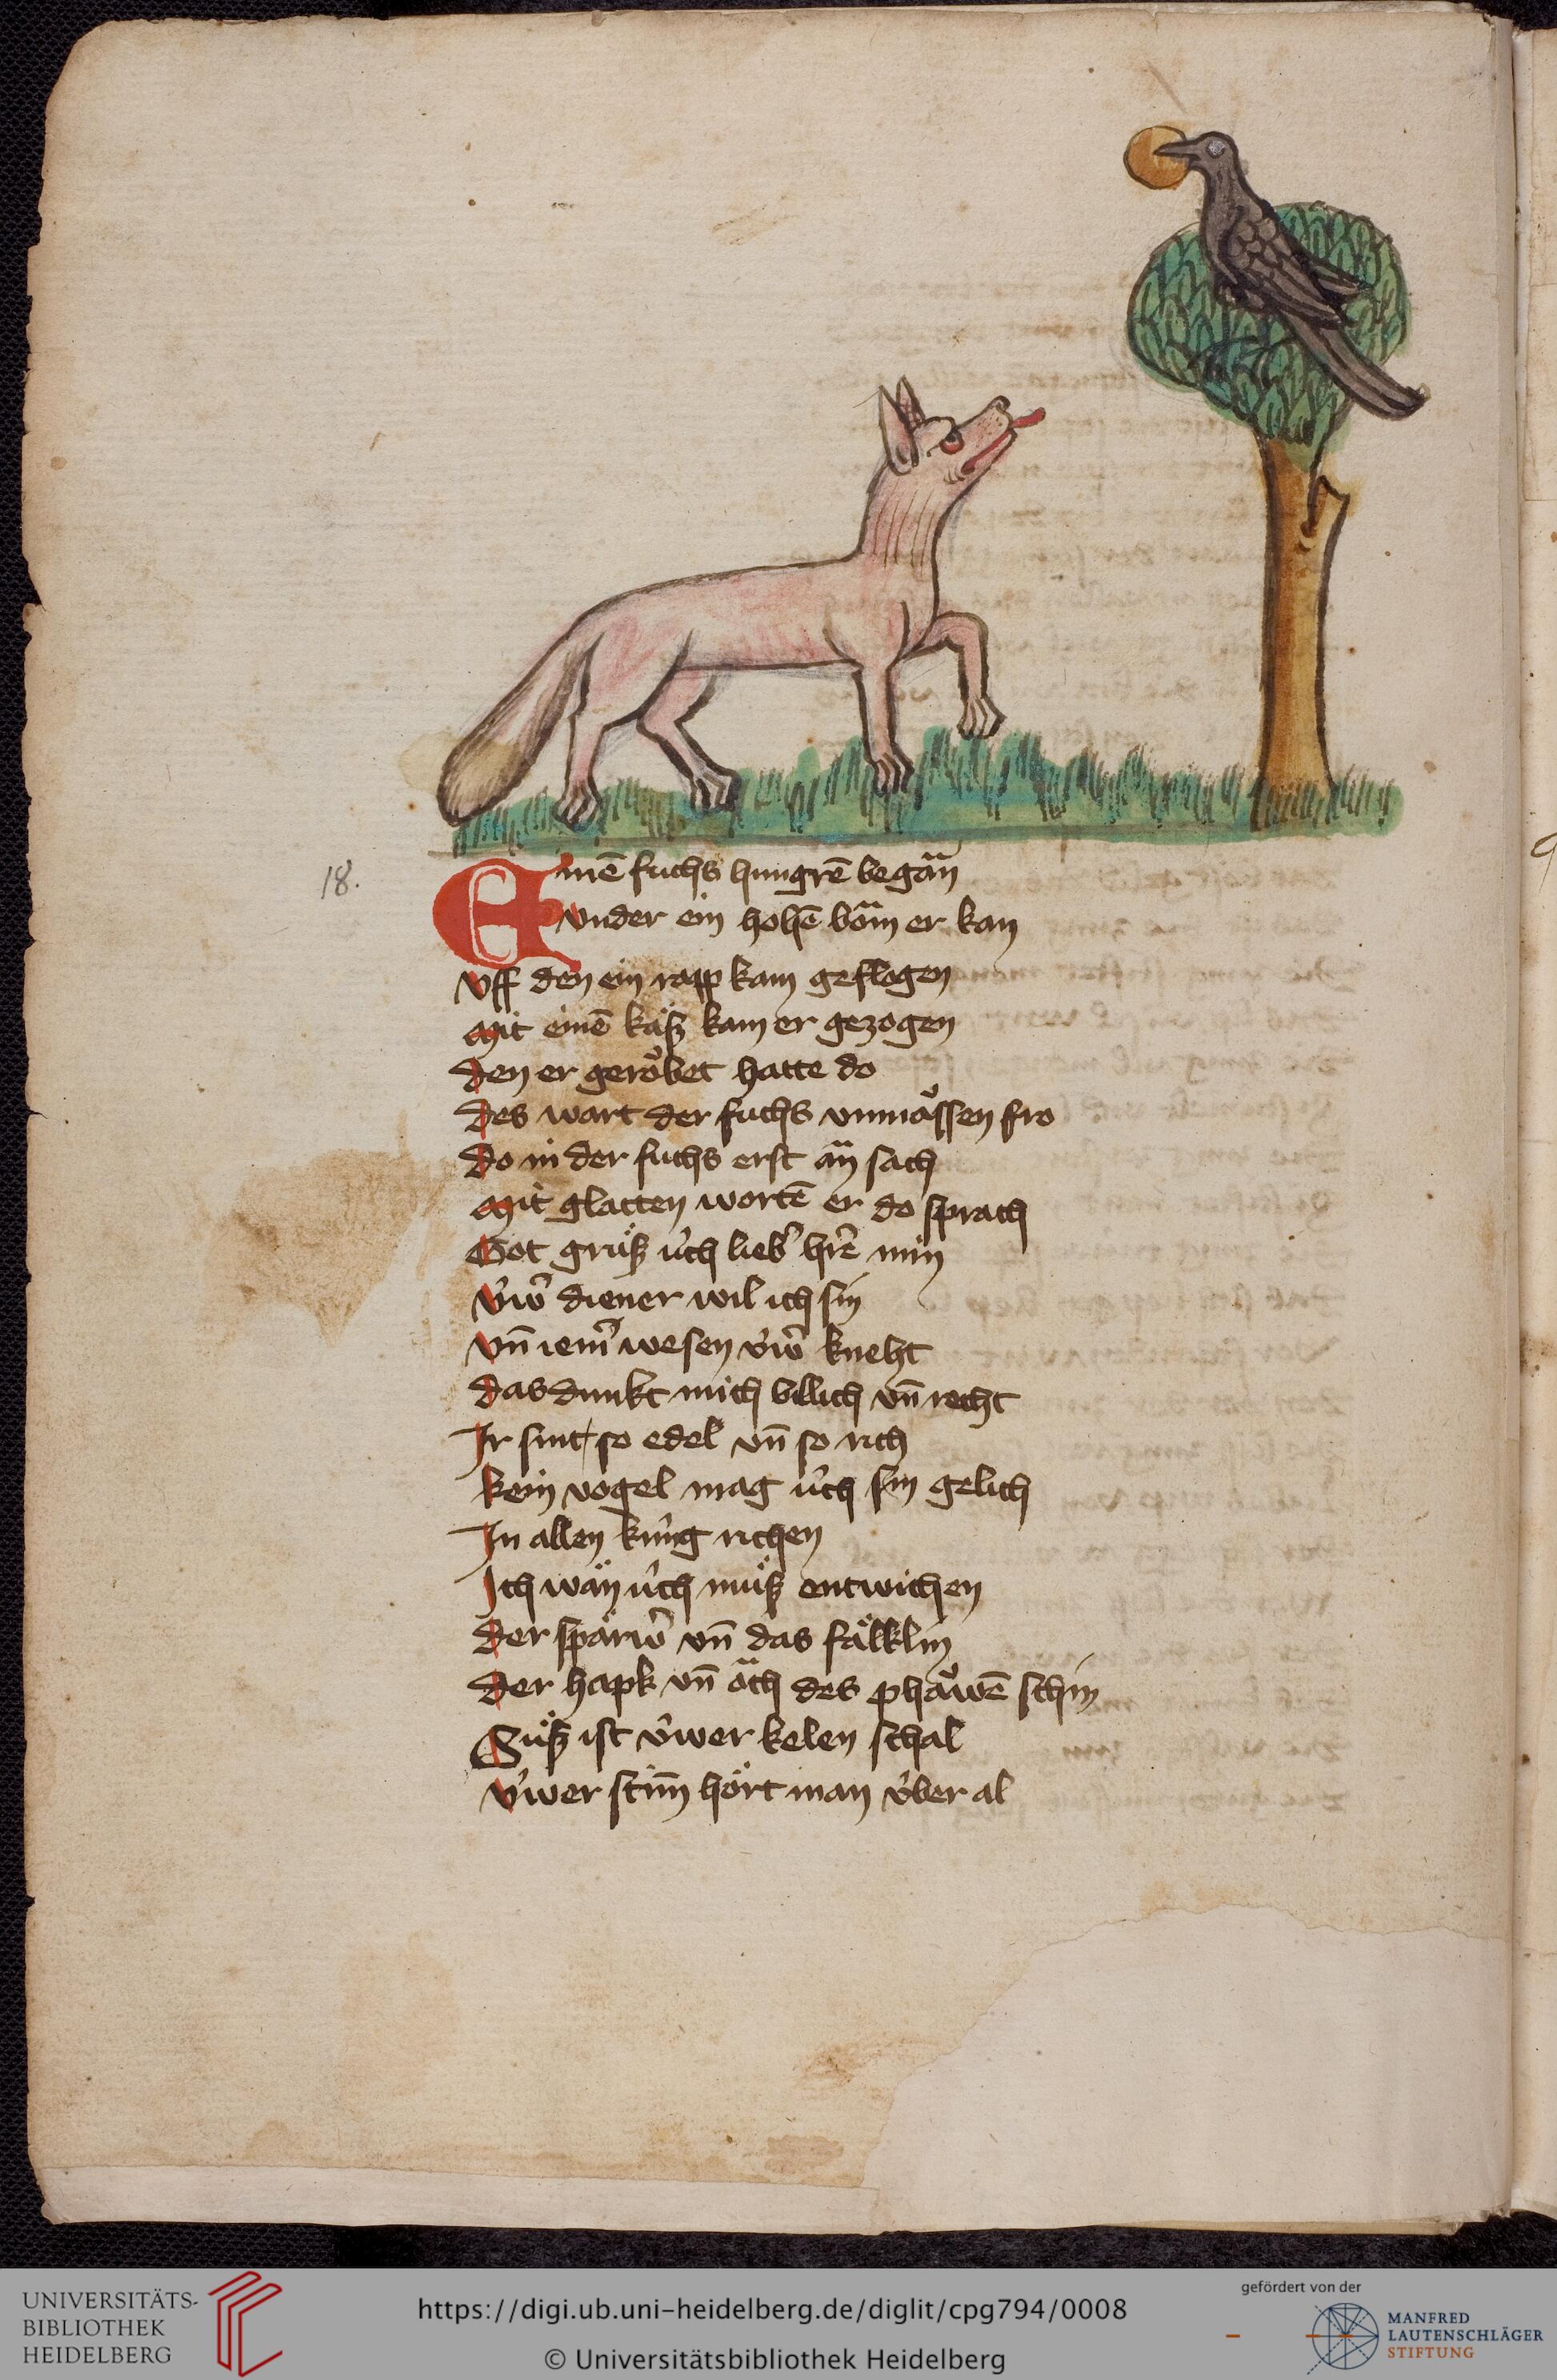 18.
Einē fuchs hungrē began
vnder ein hohē bom er kan
vff den ein rapp kam geflogen
Mit einē kaͤß kam er gezogen
den er geroͮbet hatte do
des wart der fuchs vnmaͮssen fro
do in der fuchs erst an sach
Mit glatten wortē er do sprach
Got gruͤß uͥch lieb' hr̄e min
vͥw' diener wil ich sin
vn̄ iem' wesen vͥw' kneht
das dunkt mich billich vn̄ recht
Ir sint so edel vn̄ so rich
kein vogel mag uͥch sin gelich
In allen kuͥng richen
Ich waͤn uͥch muͤß entwichen
der spaͤrw' vn̄ das faͤlklin
der hapk vn̄ oͤch des phaͮwē schin
Suͤß ist vͥwer kelen schal
vͥwer stim̄ hoͤrt man vͥber al
UNIVERSITÄTS-
BIBLIOTHEK
HEIDELBERG
https://digi.ub.uni-heidelberg.de/diglit/cpg794/0008
© Universitätsbibliothek Heidelberg
gefördert von der
MANFRED
LAUTENSCHLÄGER
STIFTUNG